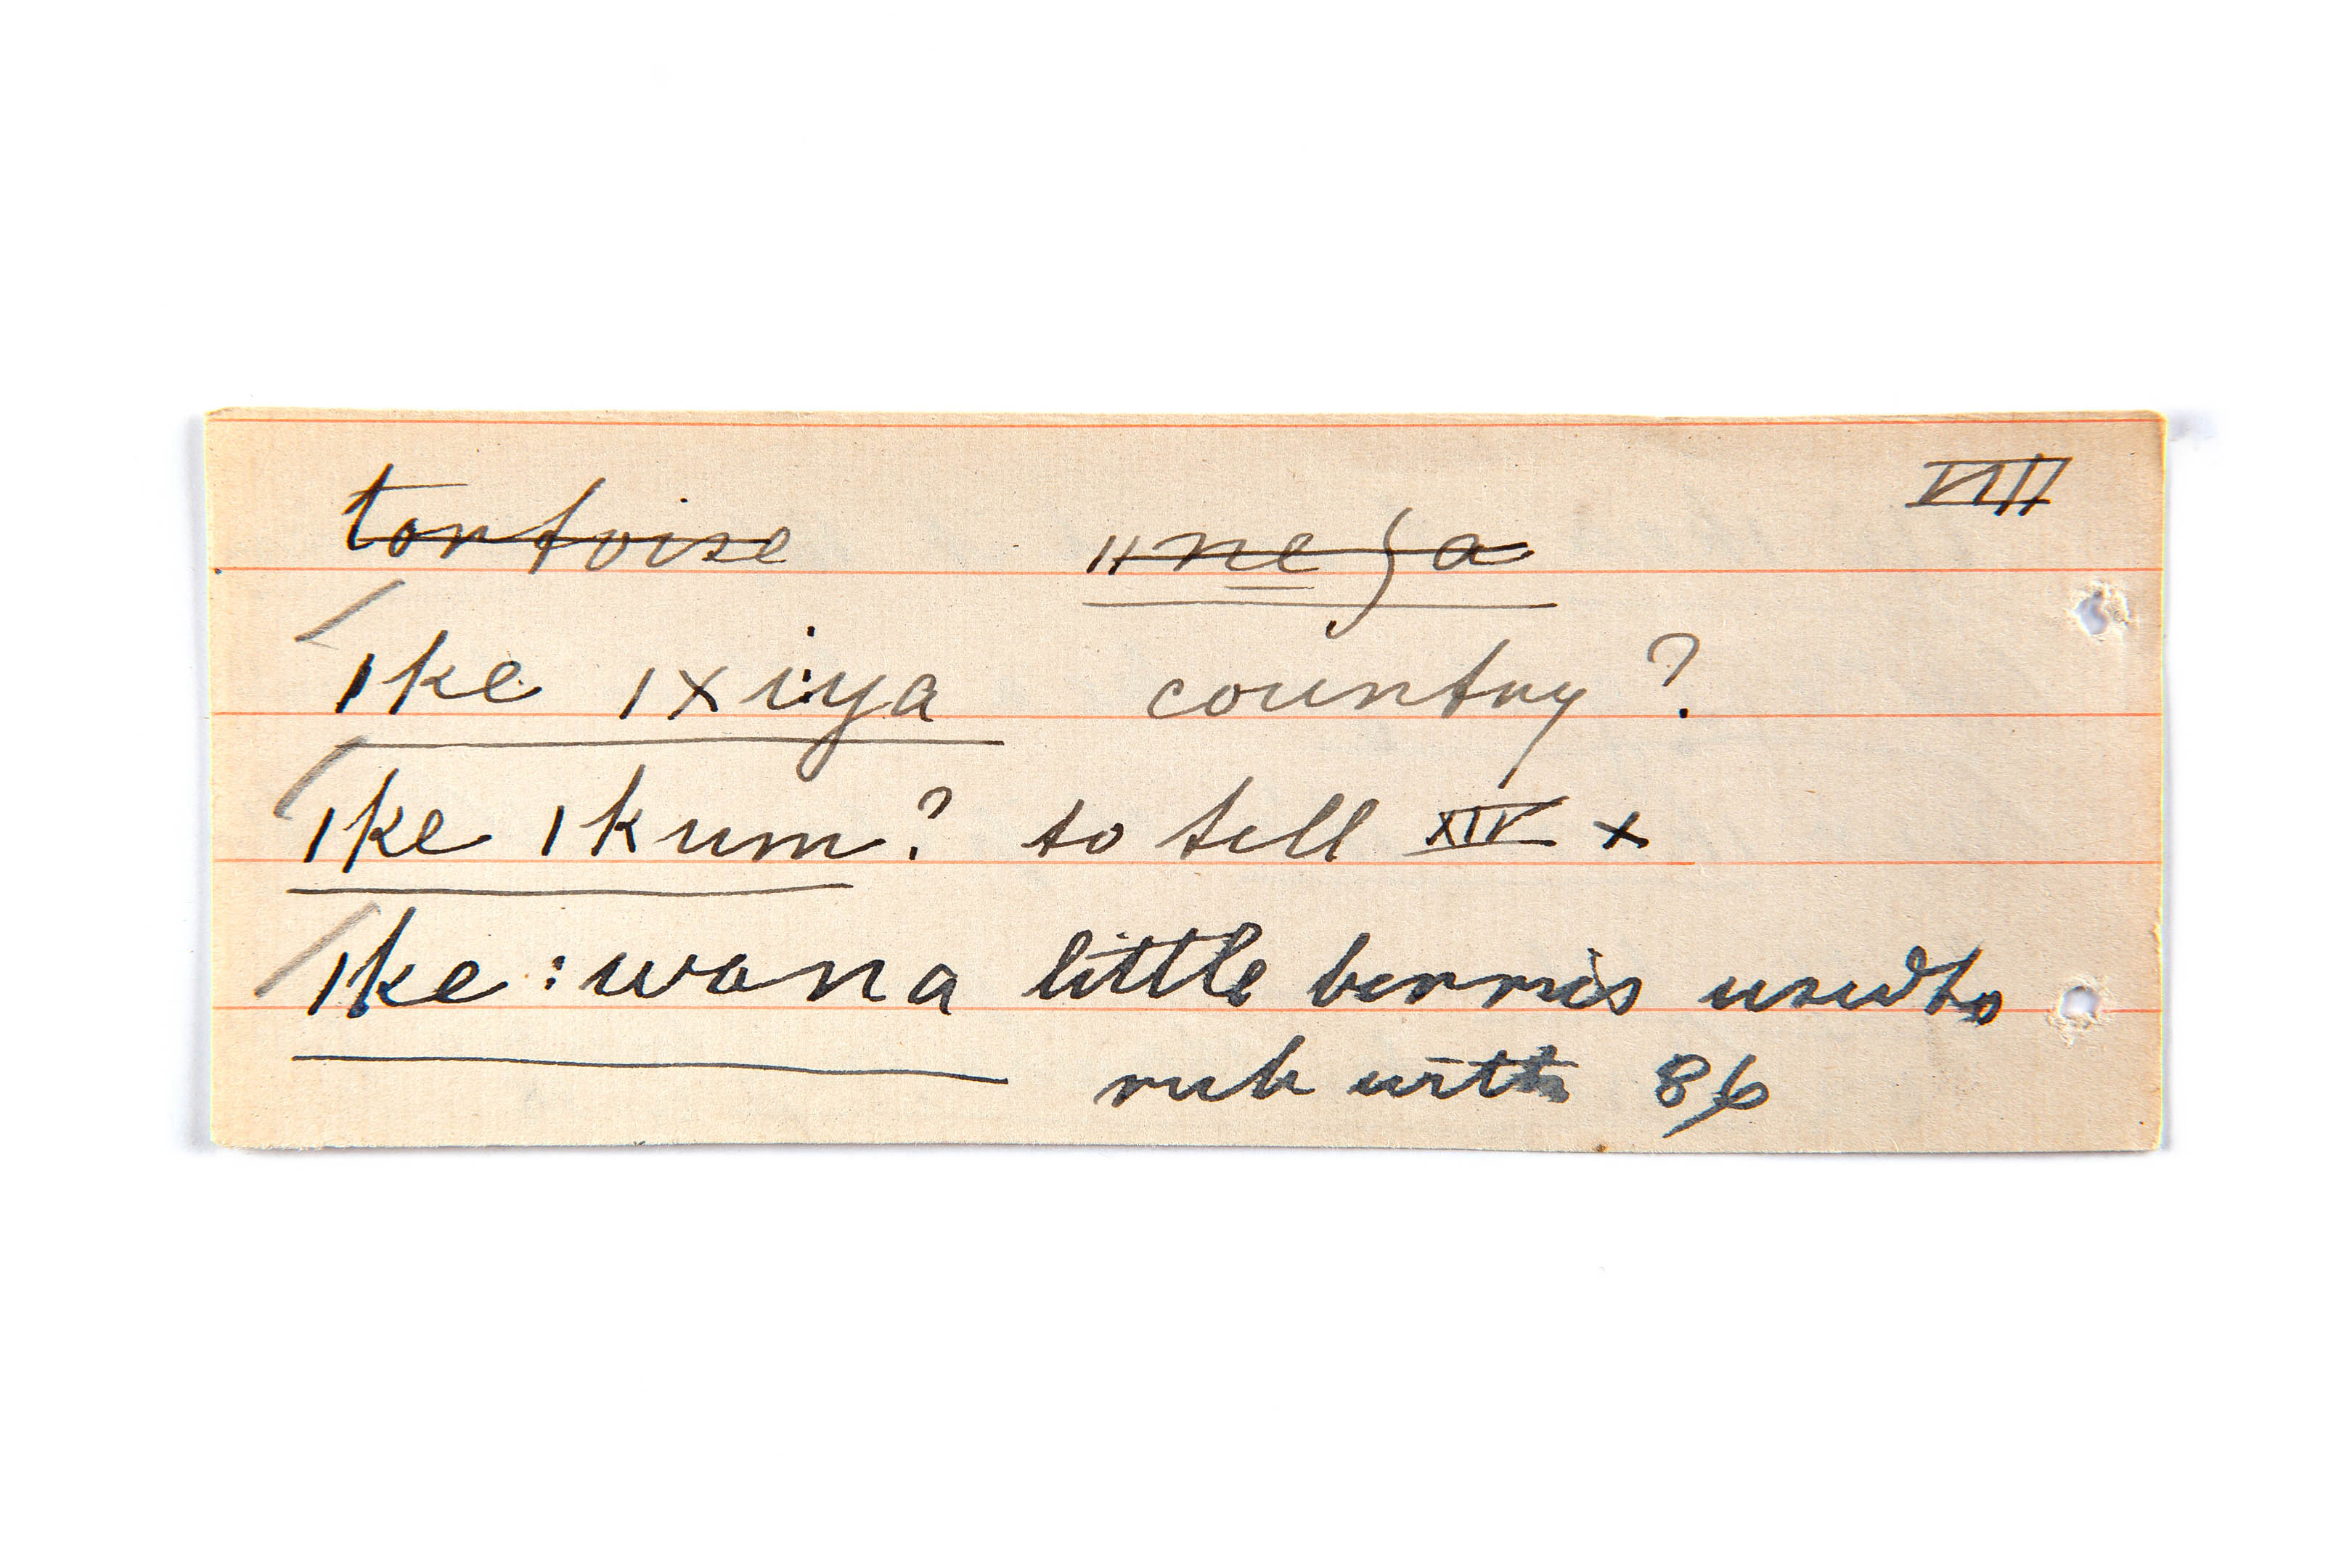 tortoise ǁneʃa VIII
ǀke ǀxi:ya country?
ǀke ǀkum? to tell XIV x
ǀke:wana little berries used to
rub with 86